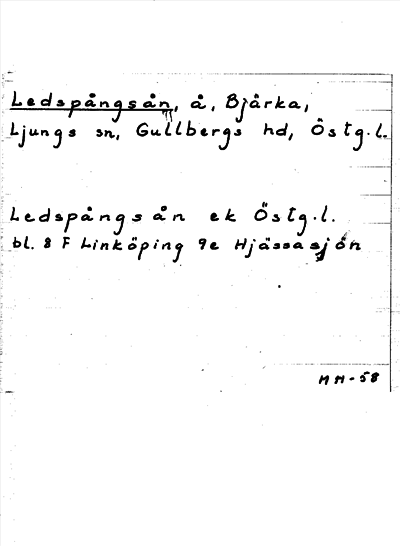 Ledspångsån, å, Bjärka,
Ljungs sn, Gullbergs hd, Östg.l.
Ledspångsån ek Östg.l.
bl. 8 F Linköping 9e Hjässasjön
MM-58